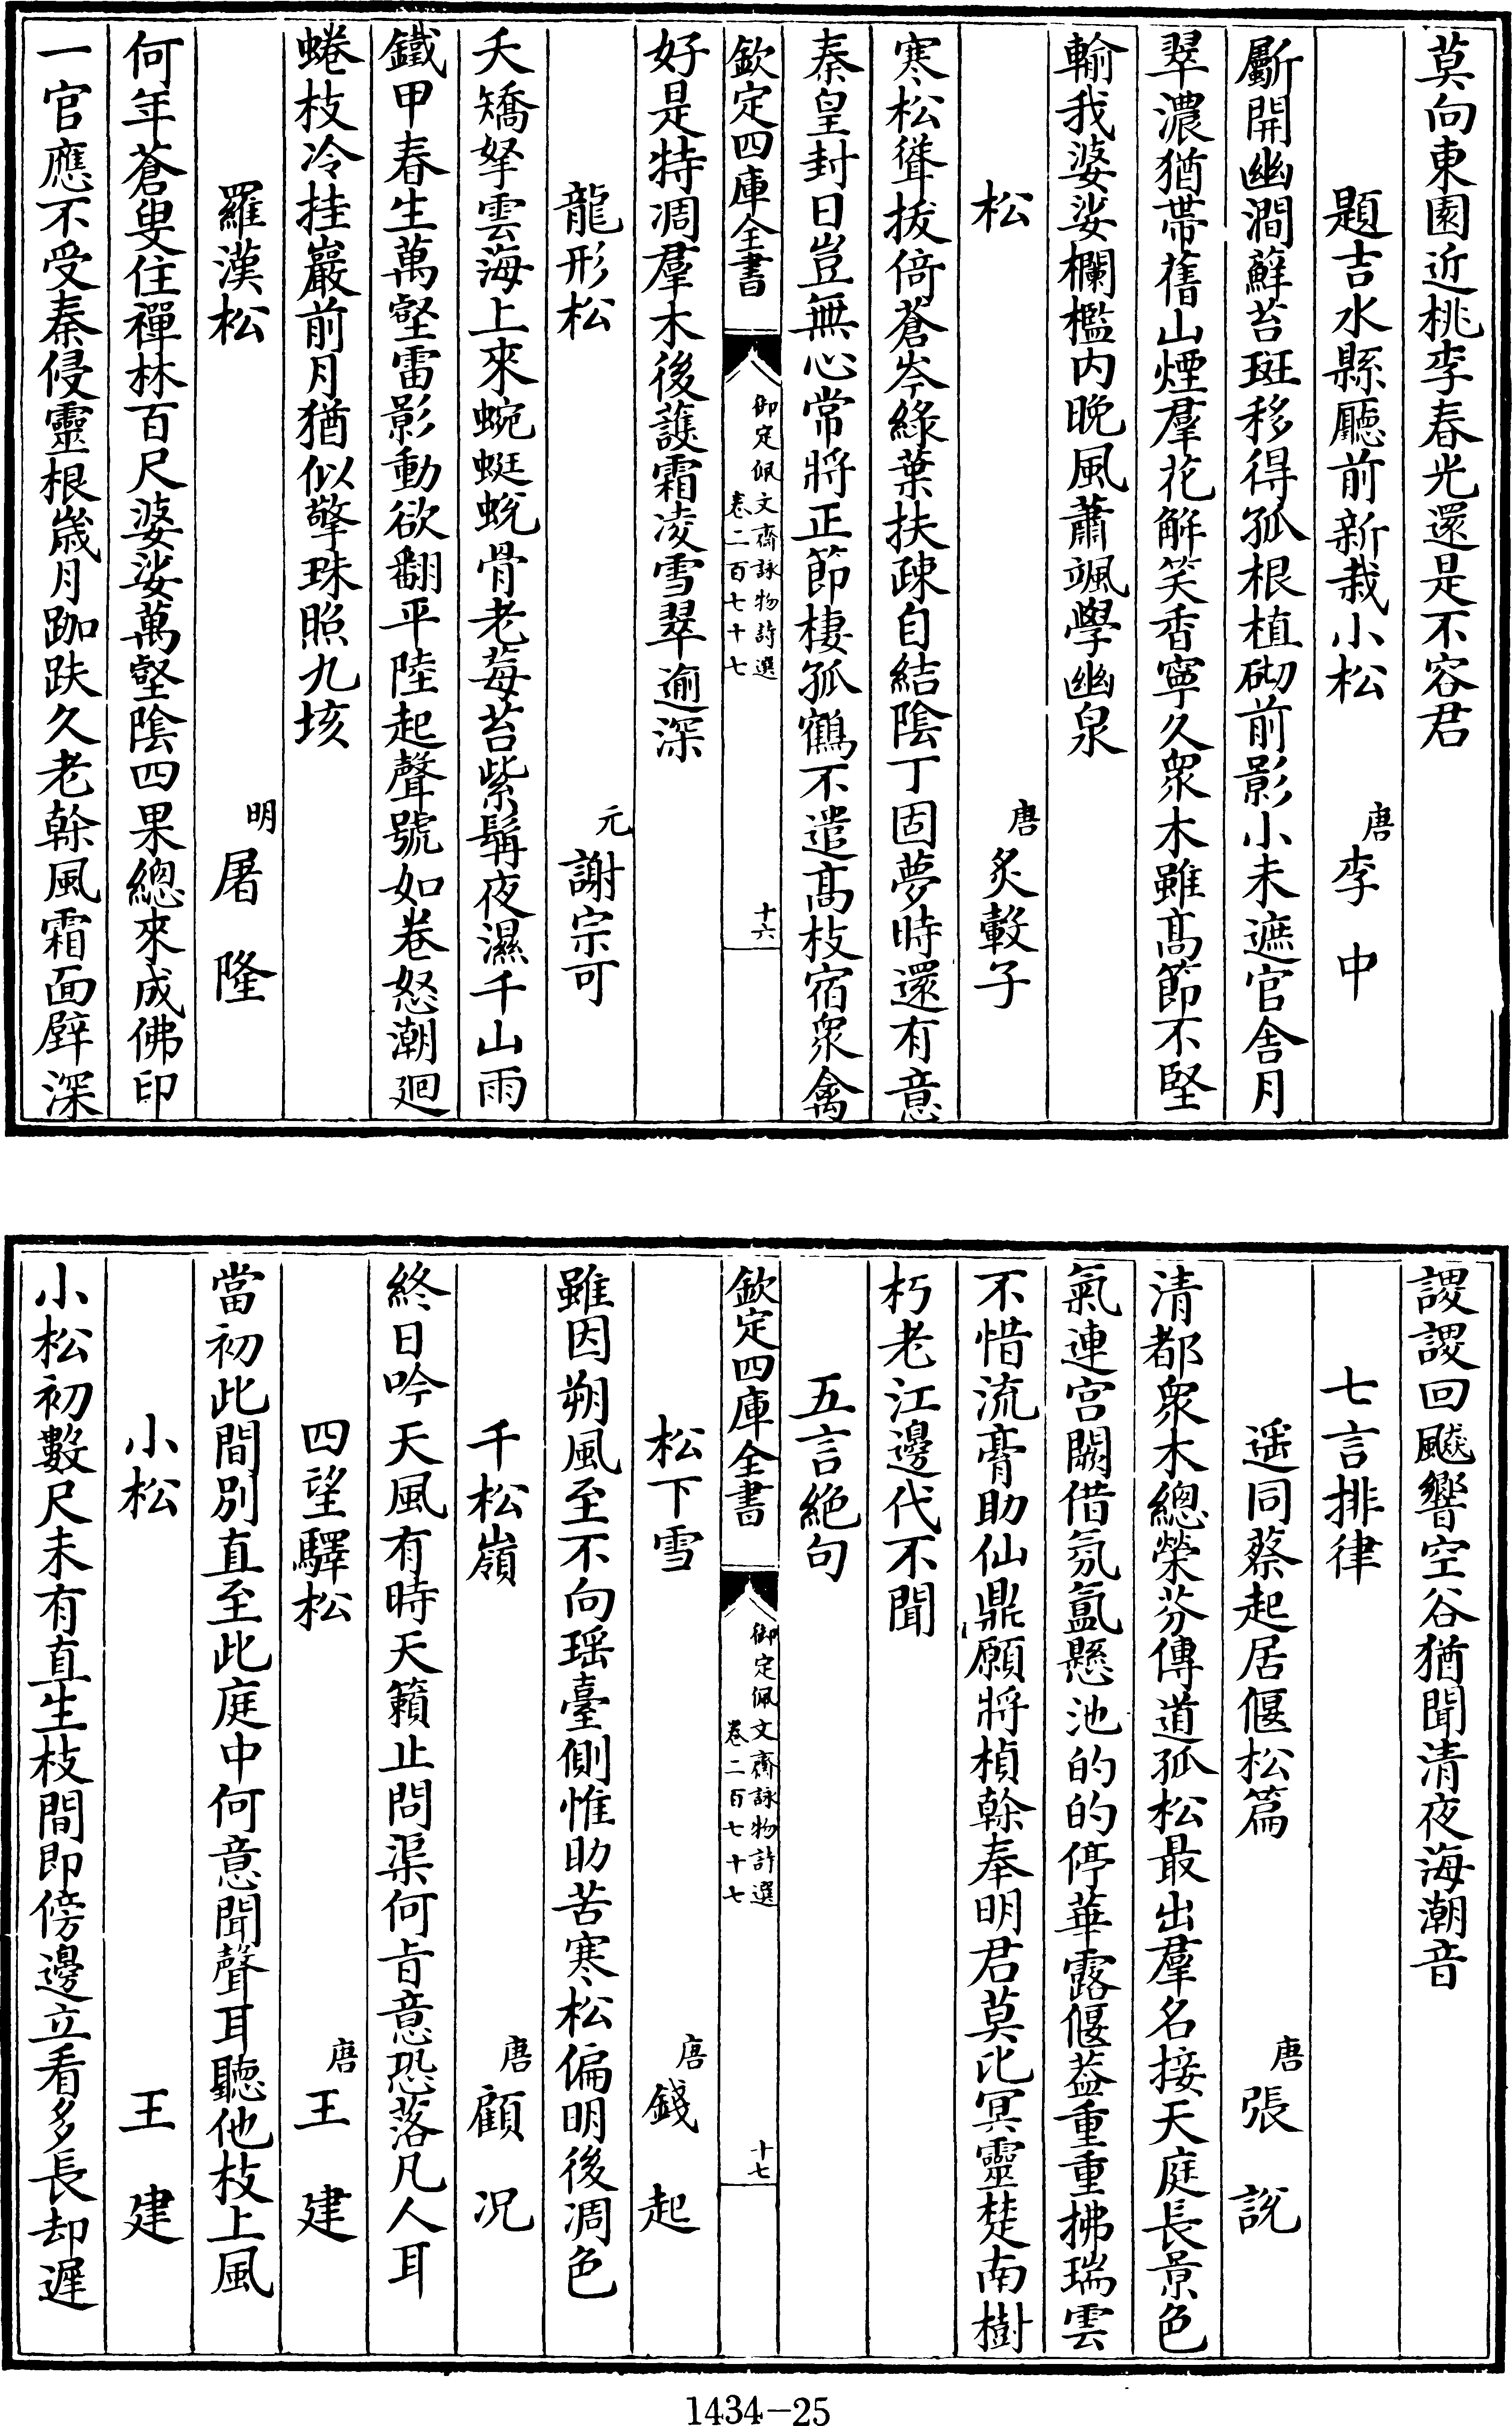 莫向東園近桃李春光還是不容君
題吉水縣廳前新栽小松 唐李中
斸開幽澗蘚苔斑移得孤根植砌前影小未遮官舎月
翠濃猶帶舊山煙羣花解笑香寧久衆木雖髙節不堅
輸我婆娑欄檻内晩風蕭颯學幽泉
松 唐炙轂子
寒松聳拔倚蒼岑綠葉扶疎自結陰丁固夢時還有意
秦皇封日豈無心常將正節棲孤鶴不遣髙枝宿衆禽
欽定四庫全書 御定佩文齋詠物詩選 卷二百七十七 十六
好是特凋羣木後護霜凌雪翠逾深
龍形松 元謝宗可
夭矯拏雲海上來蜿蜓蛻骨老莓苔紫髯夜濕千山雨
鐵甲春生萬壑雷影動欲翻平陸起聲號如卷怒潮廻
蜷枝冷挂巖前月猶似擎珠照九垓
羅漢松 明屠隆
何年蒼叟住禪林百尺婆娑萬壑陰四果總來成佛印
一官應不受秦侵靈根歳月跏趺久老榦風霜面壁深
謖謖回飈響空谷猶聞清夜海潮音
七言排律
遥同蔡起居偃松篇 唐張說
清都衆木總榮芬傳道孤松最出羣名接天庭長景色
氣連宫闕借氛氲懸池的的停華露偃葢重重拂瑞雲
不惜流膏助仙鼎願將楨榦奉明君莫比冥靈楚南樹
朽老江邊代不聞
五言絶句
欽定四庫全書 御定佩文齋詠物詩選 卷二百七十七 十七
松下雪 唐錢起
雖因朔風至不向瑶臺側惟助苦寒松偏明後凋色
千松嶺 唐顧况
終日吟天風有時天籟止問渠何㫖意恐落凡人耳
四望驛松 唐王建
當初此間别直至此庭中何意聞聲耳聽他枝上風
小松 王建
小松初數尺未有直生枝間即傍邊立看多長却遲
1434-25